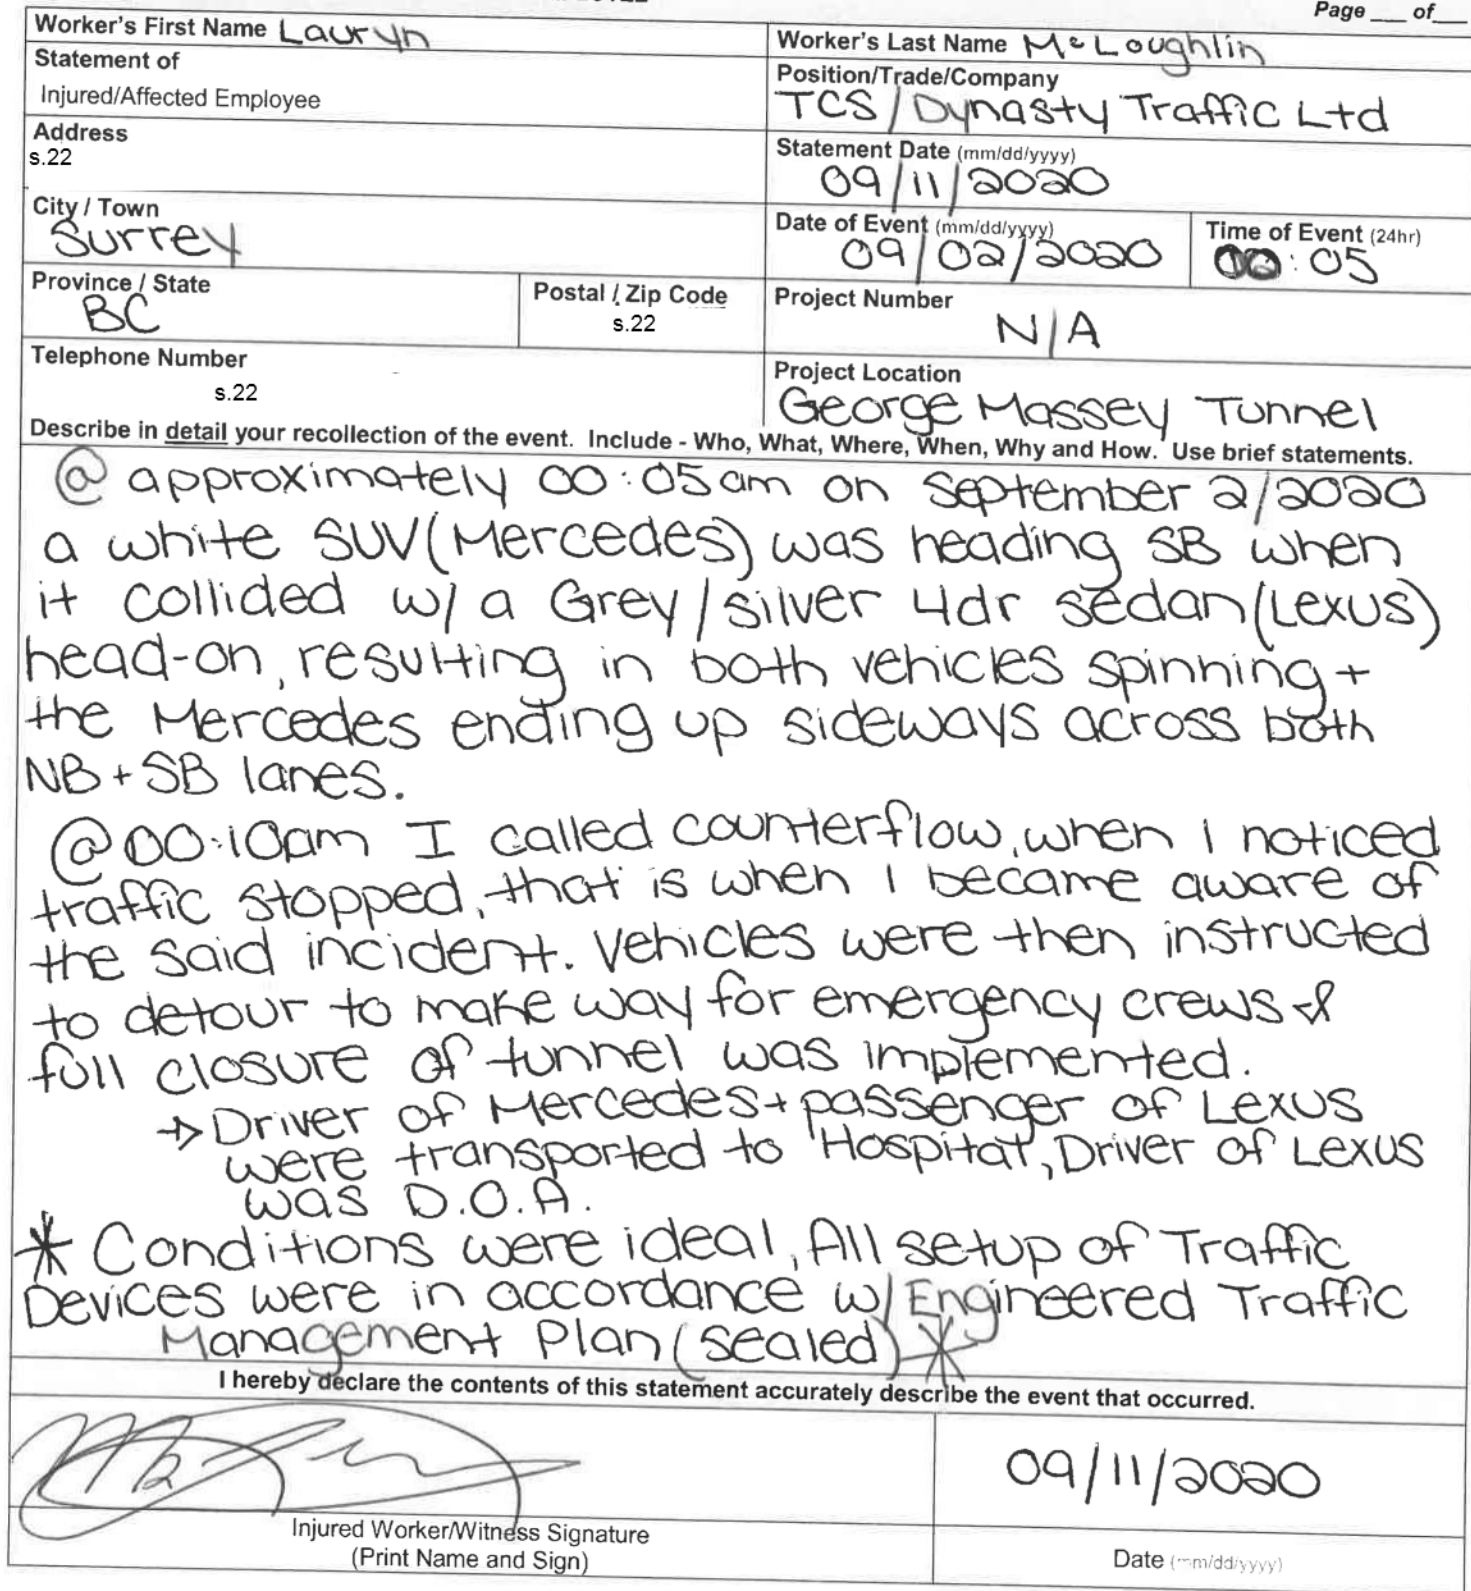 Page ___ of___
Worker's First Name Lauryn
Worker's Last Name McLoughlin
Statement of
Injured/Affected Employee
Position/Trade/Company
TCS/Dynasty Traffic Ltd
Address
s.22
Statement Date (mm/dd/yyyy)
09/11/2020
City / Town
Surrey
Date of Event (mm/dd/yyyy)
09/02/2020
Time of Event (24hr)
00:05
Province / State
BC
Postal / Zip Code
s.22
Project Number
N/A
Telephone Number
s.22
Project Location
George Massey Tunnel
Describe in detail your recollection of the event. Include - Who, What, Where, When, Why and How. Use brief statements.
@ approximately 00:05am on September 2/2020
a white SUV(Mercedes) was heading SB when
it collided w/ a Grey/silver 4dr sedan(Lexus)
head-on, resulting in both vehicles spinning +
the Mercedes ending up sideways across both
NB + SB lanes.
@00:10am I called counterflow, when I noticed
traffic stopped, that is when I became aware of
the said incident. Vehicles were then instructed
to detour to make way for emergency crews &
full closure of tunnel was implemented.
→ Driver of Mercedes + passenger of Lexus
were transported to Hospital, Driver of Lexus
was D.O.A.
* Conditions were ideal, All setup of Traffic
Devices were in accordance w/ Engineered Traffic
Management Plan (sealed) *
I hereby declare the contents of this statement accurately describe the event that occurred.
09/11/2020
Injured Worker/Witness Signature
(Print Name and Sign)
Date (mm/dd/yyyy)